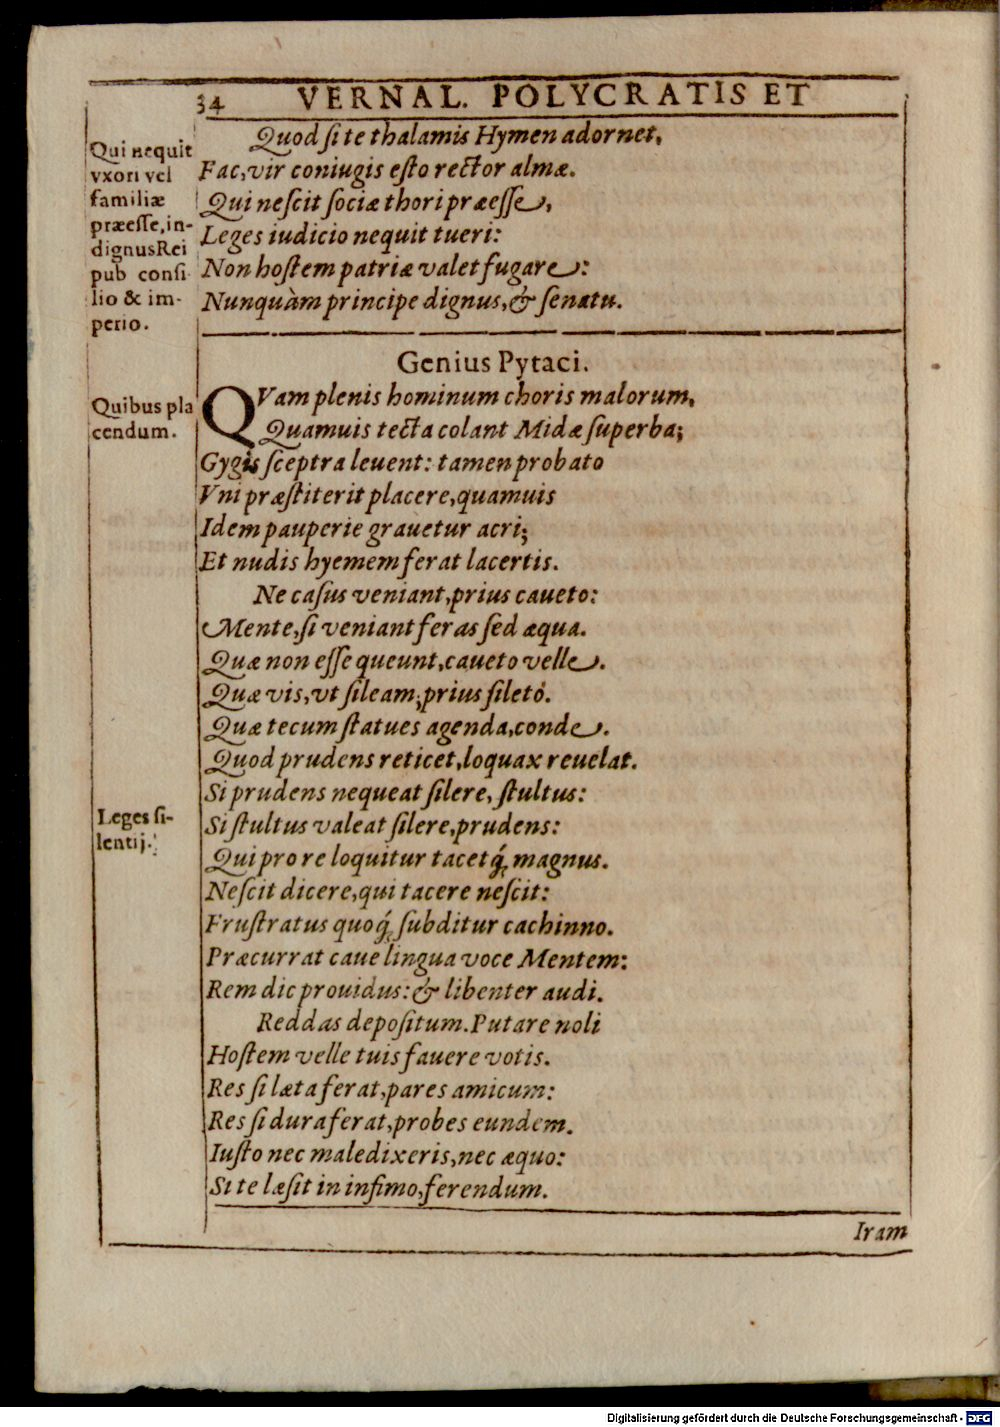 34 VERNAL. POLYCRATIS ET
Qui nequit
vxori vel
familiæ
præesse, in-
dignus Rei
pub consi
lio & im-
perio.
Quod si te thalamis Hymen adornet,
Fac, vir coniugis esto rector almæ.
Qui nescit sociæ thori præesse,
Leges iudicio nequit tueri:
Non hostem patriæ valet fugare:
Nunquàm principe dignus, & senatu.
Genius Pytaci.
Quibus pla
cendum.
QVam plenis hominum choris malorum,
Quamuis tecta colant Midæ superba;
Gygis sceptra leuent: tamen probato
Vni præstiterit placere, quamuis
Idem pauperie grauetur acri;
Et nudis hyemem ferat lacertis.
Ne casus veniant, prius caueto:
Mente, si veniant feras sed æqua.
Quæ non esse queunt, caueto velle.
Quæ vis, vt sileam; prius sileto.
Quæ tecum statues agenda, conde.
Quod prudens reticet, loquax reuelat.
Si prudens nequeat silere, stultus:
Leges si-
lentij.
Si stultus valeat silere, prudens:
Qui pro re loquitur tacetq́; magnus.
Nescit dicere, qui tacere nescit:
Frustratus quoq́; subditur cachinno.
Præcurrat caue lingua voce Mentem:
Rem dic prouidus: & libenter audi.
Reddas depositum. Putare noli
Hostem velle tuis fauere votis.
Res si læta ferat, pares amicum:
Res si dura ferat, probes eundem.
Iusto nec maledixeris, nec æquo:
Si te læsit in infimo, ferendum.
Iram
Digitalisierung gefördert durch die Deutsche Forschungsgemeinschaft - DFG